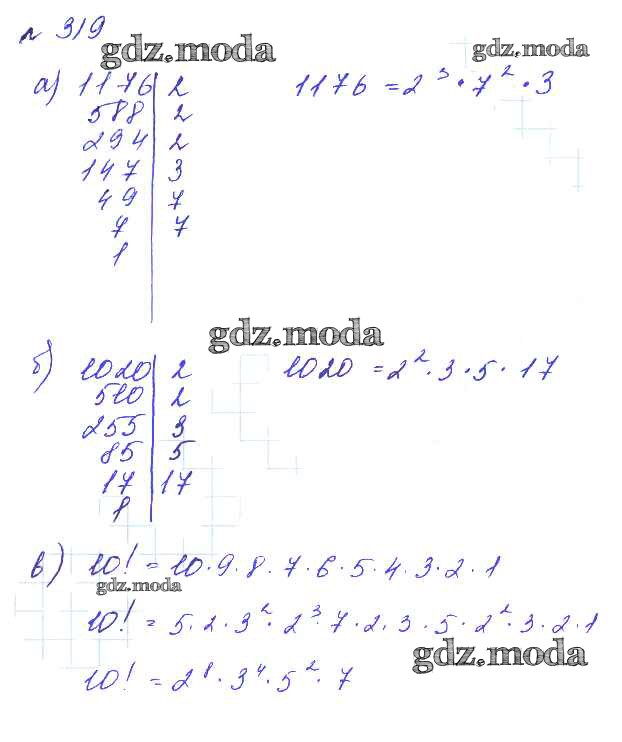 № 319
gdz.moda
gdz.moda
а) 1176 | 2
588 | 2
294 | 2
147 | 3
49 | 7
7 | 7
1
1176 = 2³ · 7² · 3
gdz.moda
б) 1020 | 2
510 | 2
255 | 3
85 | 5
17 | 17
1
1020 = 2² · 3 · 5 · 17
в) 10! = 10 · 9 · 8 · 7 · 6 · 5 · 4 · 3 · 2 · 1
gdz.moda
10! = 5 · 2 · 3² · 2³ · 7 · 2 · 3 · 5 · 2² · 3 · 2 · 1
gdz.moda
10! = 2⁸ · 3⁴ · 5² · 7